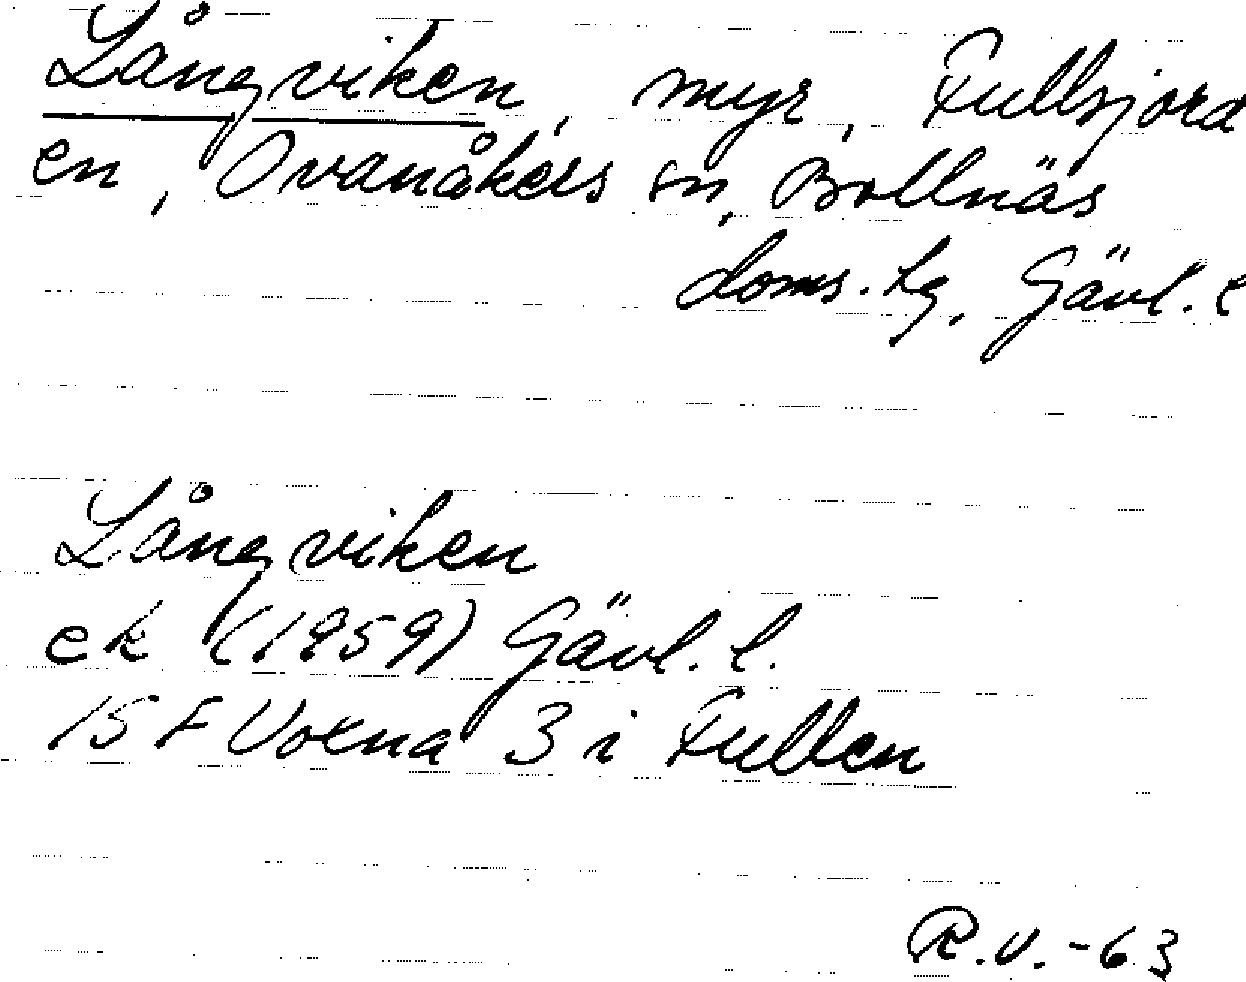 Långviken, myr, Fullsjord
en, Ovanåkers sn, Bollnäs
doms. tg, Gävl. l
Långviken
ek (1959) Gävl. l.
15 F Voxna 3 i Fullen
R.V. -63